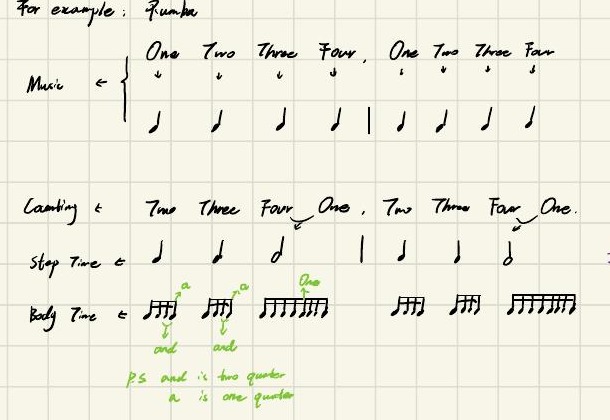 For example : Rumba
One Two Three Four , One Two Three Four
Music ←
Counting ← Two Three Four One , Two Three Four One .
Step Time ←
a a One
Body Time ←
and and
P.S and is two quater
a is one quater